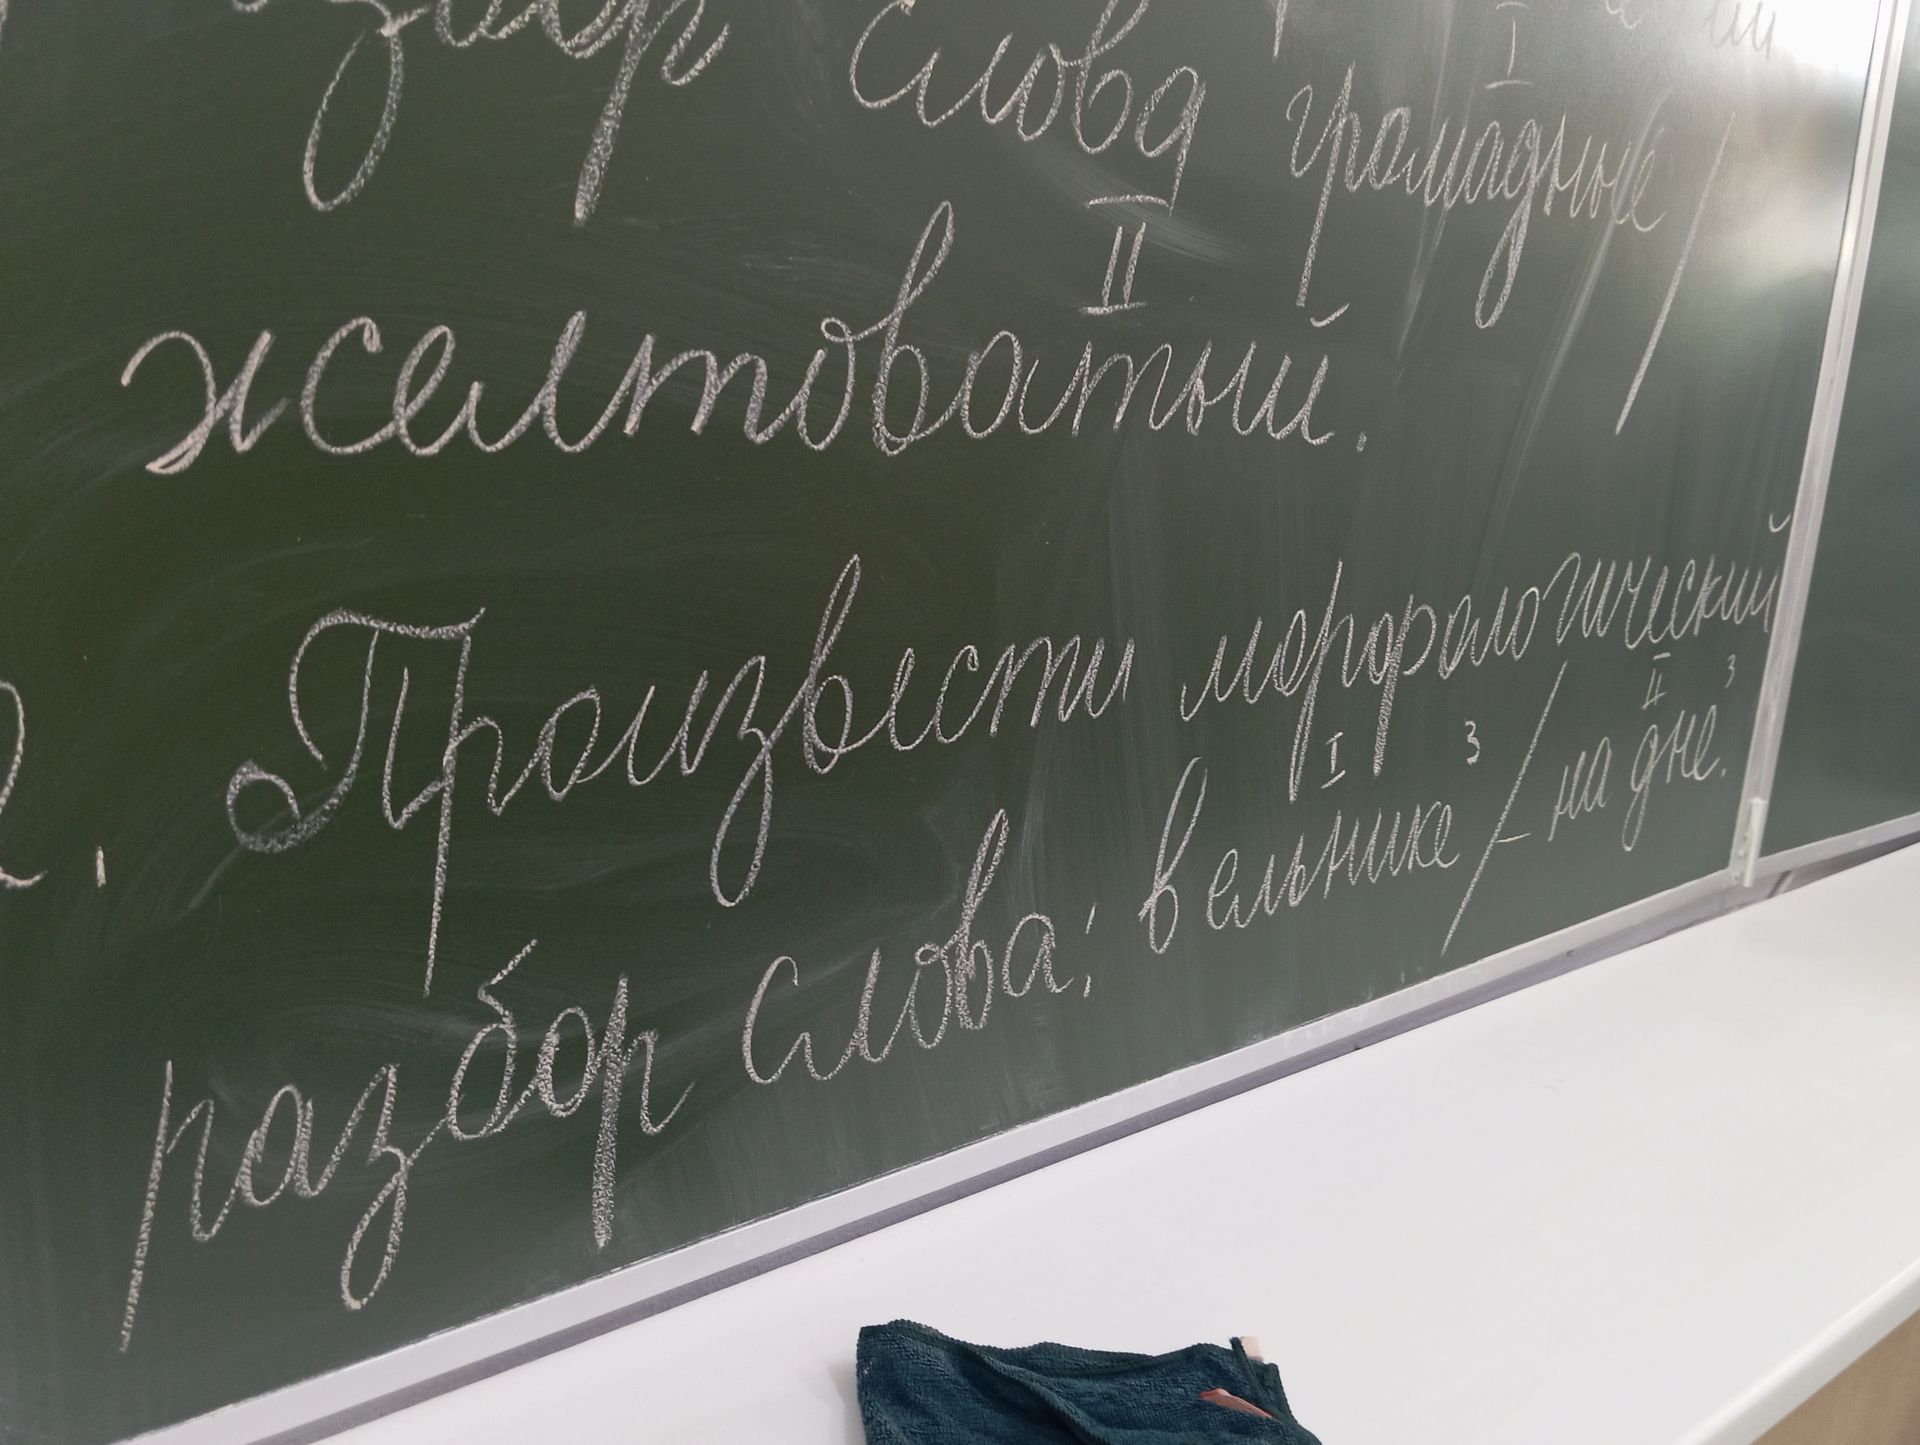 разбор слова громадные /
I
желтоватый.
II
2. Произвести морфологический
разбор слова: в ельнике / – на дне.
I 3 II 3